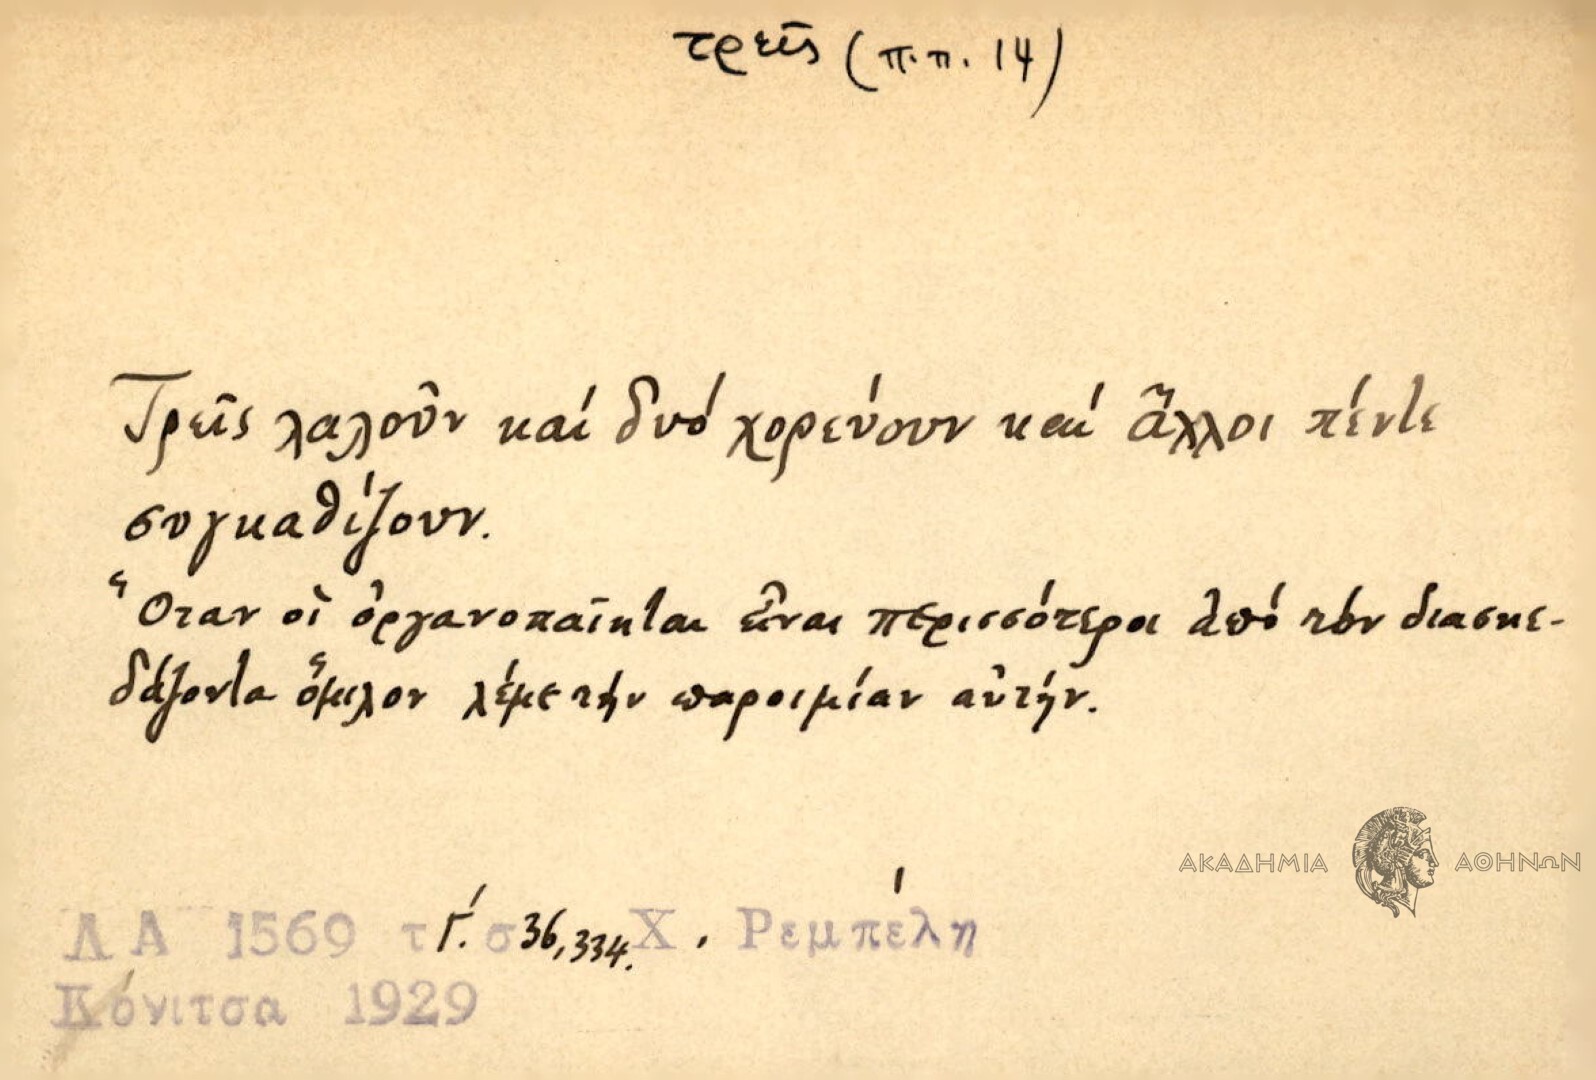 τρεῖς (π.π. 14)
Τρεῖς λαλοῦν καί δυό χορεύουν καί ἄλλοι πέντε
συγκαθίζουν.
Ὅταν οἱ ὀργανοπαῖκται εἶναι περισσότεροι ἀπό τόν διασκε-
δάζοντα ὅμιλον λέμε τήν παροιμίαν αὐτήν.
ΑΚΑΔΗΜΙΑ ΑΘΗΝΩΝ
ΛΑ 1569 τ Γ΄. σ 36,334. Χ. Ρεμπέλη
Κόνιτσα 1929